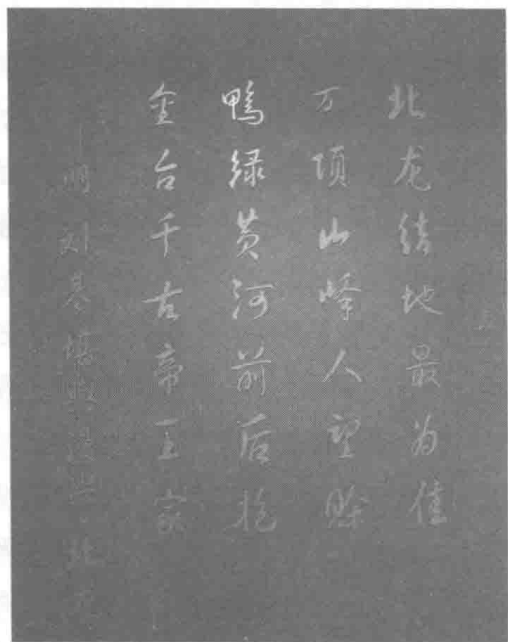 北龙结地最为佳
万顷山峰人望赊
鸭绿黄河前后抱
金台千古帝王家
明刘基堪舆